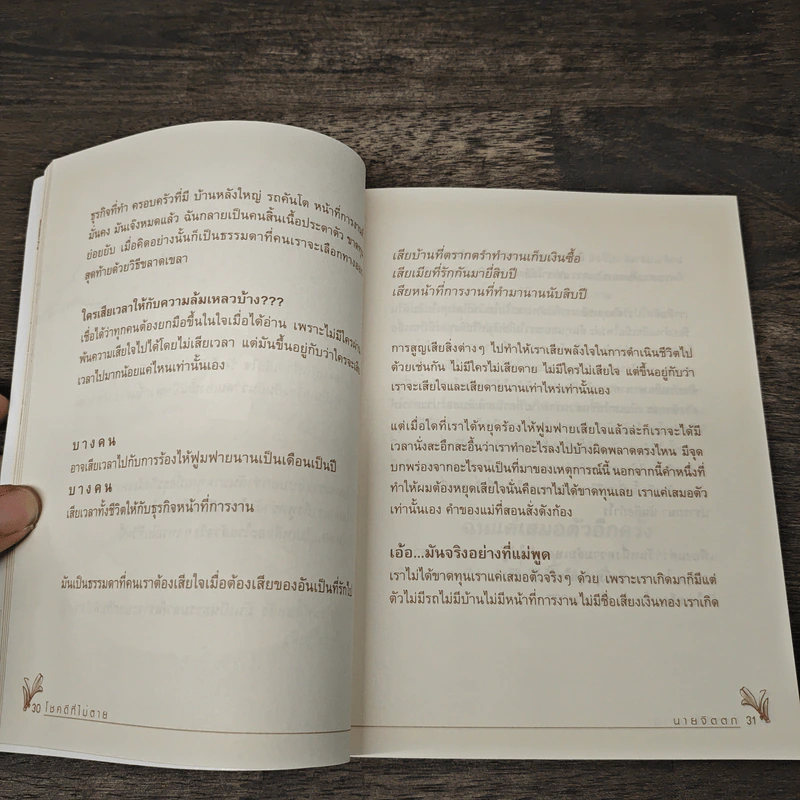 ธุรกิจที่ทำ ครอบครัวที่มี บ้านหลังใหญ่ รถคันโต หน้าที่การงานที่
มั่นคง มันเจ๊งหมดแล้ว ฉันกลายเป็นคนสิ้นเนื้อประดาตัว
ย่อยยับ เมื่อคิดอย่างนั้นก็เป็นธรรมดาที่คนเราจะเลือกทางออก
สุดท้ายด้วยวิธีขลาดเขลา
ใครเสียเวลาให้กับความล้มเหลวบ้าง???
เชื่อได้ว่าทุกคนต้องยกมือขึ้นในใจเมื่อได้อ่าน เพราะไม่มีใครผ่าน
พ้นความเสียใจไปได้โดยไม่เสียเวลา แต่มันขึ้นอยู่กับว่าใครจะเสีย
เวลาไปมากน้อยแค่ไหนเท่านั้นเอง
บางคน
อาจเสียเวลาไปกับการร้องไห้ฟูมฟายนานเป็นเดือนเป็นปี
บางคน
เสียเวลาทั้งชีวิตให้กับธุรกิจหน้าที่การงาน
มันเป็นธรรมดาที่คนเราต้องเสียใจเมื่อต้องเสียของอันเป็นที่รักไป
30 โชคดีที่ไม่ตาย
เสียบ้านที่ตรากตรำทำงานเก็บเงินซื้อ
เสียเมียที่รักกันมายี่สิบปี
เสียหน้าที่การงานที่ทำมานานนับสิบปี
การสูญเสียสิ่งต่างๆ ไปทำให้เราเสียพลังใจในการดำเนินชีวิตไป
ด้วยเช่นกัน ไม่มีใครไม่เสียดาย ไม่มีใครไม่เสียใจ แต่ขึ้นอยู่กับว่า
เราจะเสียใจและเสียดายนานเท่าไหร่เท่านั้นเอง
แต่เมื่อใดที่เราได้หยุดร้องไห้ฟูมฟายเสียใจแล้วล่ะก็เราจะได้มี
เวลานั่งสะอึกสะอื้นว่าเราทำอะไรลงไปบ้างผิดพลาดตรงไหน มีจุด
บกพร่องจากอะไรจนเป็นที่มาของเหตุการณ์นี้ นอกจากนี้คำหนึ่งที่
ทำให้ผมต้องหยุดเสียใจนั่นคือเราไม่ได้ขาดทุนเลย เราแค่เสมอตัว
เท่านั้นเอง คำของแม่ที่สอนสั่งดังก้อง
เอ้อ...มันจริงอย่างที่แม่พูด
เราไม่ได้ขาดทุนเราแค่เสมอตัวจริงๆ ด้วย เพราะเราเกิดมาก็มีแต่
ตัวไม่มีรถไม่มีบ้านไม่มีหน้าที่การงาน ไม่มีชื่อเสียงเงินทอง เราเกิด
นายจิตตก 31